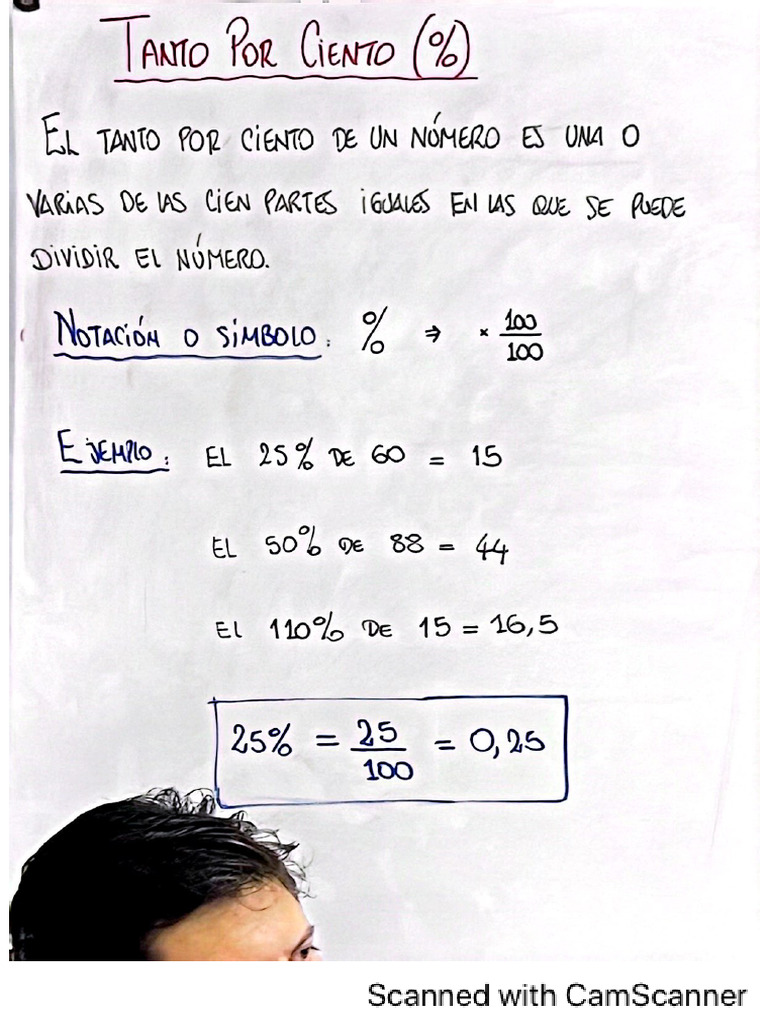 TANTO POR CIENTO (%)
EL TANTO POR CIENTO DE UN NÚMERO ES UNA O
VARIAS DE LAS CIEN PARTES IGUALES EN LAS QUE SE PUEDE
DIVIDIR EL NÚMERO.
NOTACIÓN O SÍMBOLO: % ⇒ × 100/100
EJEMPLO: EL 25% DE 60 = 15
EL 50% DE 88 = 44
EL 110% DE 15 = 16,5
25% = 25/100 = 0,25
Scanned with CamScanner